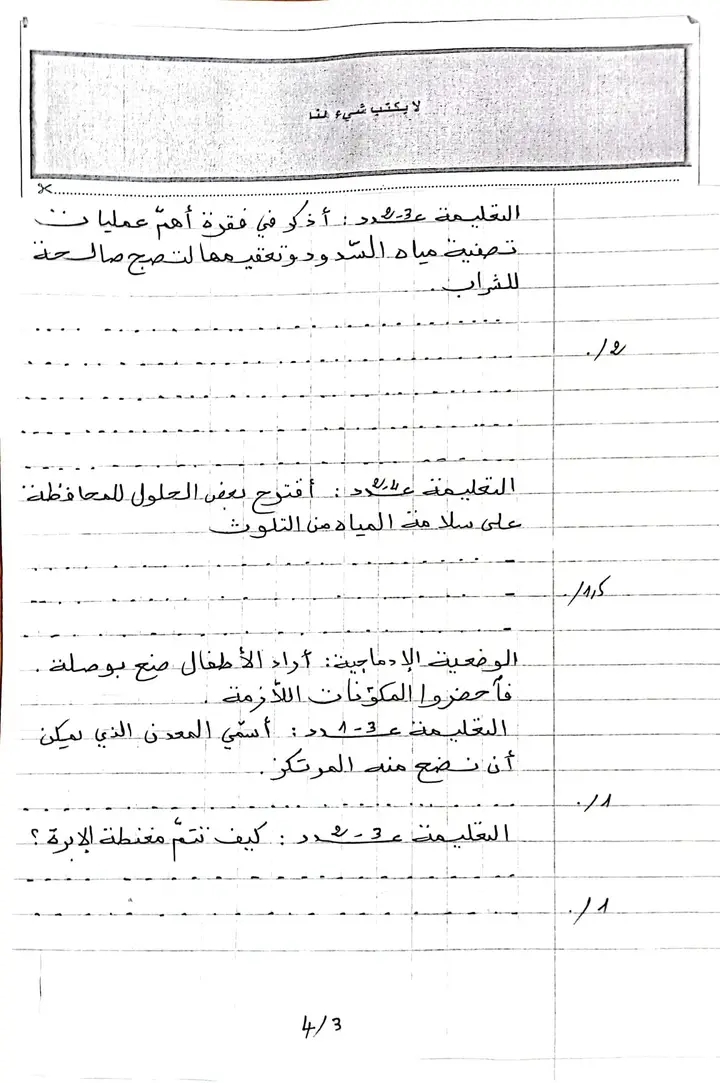 لا يكتب شيء هنا
التعليمة عـ2-3ـدد : أذكر في فقرة أهمّ عمليات
تصفية مياه السّدود وتعقيمها لتصبح صالحة
للشراب .
/2
التعليمة عـ2-4ـدد : أقترح بعض الحلول للمحافظة
على سلامة المياه من التلوث
-
-
/1,5
-
الوضعية الإدماجية : أراد الأطفال صنع بوصلة .
فأحضروا المكوّنات اللاّزمة .
التعليمة عـ3-1ـدد : أسمّي المعدن الذي يمكن
أن نصنع منه المرتكز .
/1
التعليمة عـ3-2ـدد : كيف تتمّ مغنطة الإبرة ؟
/1
4/3